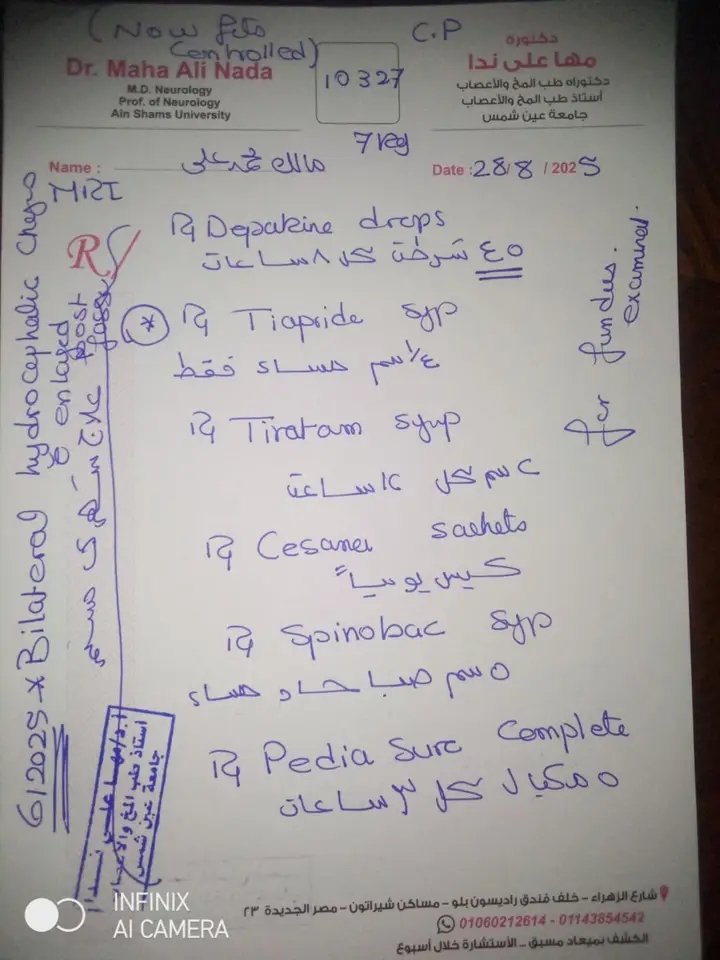 (Now fits
Controlled)
C.P
Dr. Maha Ali Nada
M.D. Neurology
Prof. of Neurology
Ain Shams University
10327
دكتورة
مها على ندا
دكتوراه طب المخ والأعصاب
أستاذ طب المخ والأعصاب
جامعة عين شمس
Name : مالك محمد على
Date : 28/8/2025
MRI
R/
℞ Depakine drops
٤٥ شرطة كل ٨ ساعات
* ℞ Tiapride syp
مساء فقط
℞ Tiratam syrup
٢ سم كل ١٢ ساعة
℞ sachets
كيس يومياً
℞ Spinobac syp
٥ سم صباحا و مساء
℞ Pedia Sure Complete
٥ مكيال كل ٣ ساعات
for fundus.
examined.
6/2025 * Bilateral hydrocephalic
enlarged
post
علاج شهرى
أ.د/ مها على ندا
استاذ طب المخ والأعصاب
جامعة عين شمس
شارع الزهراء - خلف فندق راديسون بلو - مساكن شيراتون - مصر الجديدة ٢٣
01060212614 - 01143854542
الكشف بميعاد مسبق - الأستشارة خلال أسبوع
INFINIX
AI CAMERA